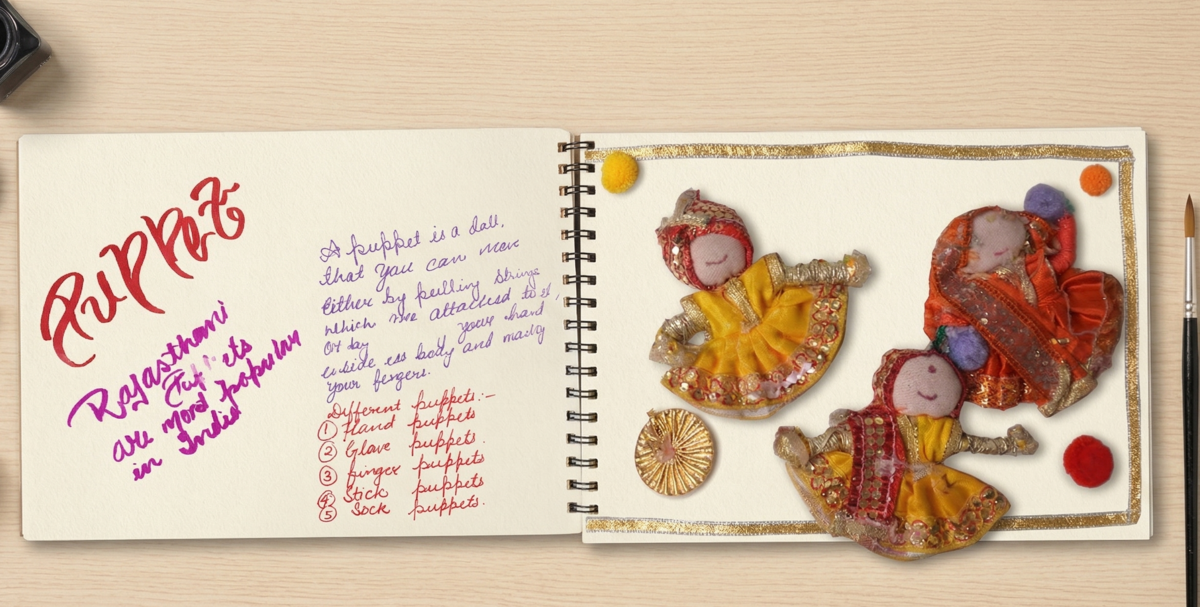 Puppet
Rajasthani
Puppets
are most popular
in India
A puppet is a doll,
that you can move
Either by pulling strings
which are attached to it,
or by your hand
inside its body and making
your fingers.
Different puppets:-
① Hand puppets
② Glove puppets.
③ finger puppets
④ Stick puppets
⑤ Sock puppets.